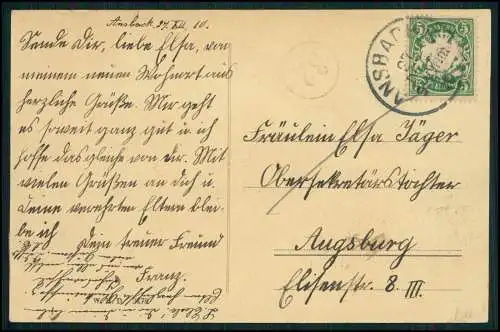 Ansbach 27. VII. 10.
Sende Dir, liebe Elsa, von
meinem neuen Wohnort aus
herzliche Grüße. Mir geht
es soweit ganz gut u. ich
hoffe das gleiche von Dir. Mit
vielen Grüßen an Dich u.
Deine verehrten Eltern blei-
be ich Dein treuer Freund
Franz.
ANSBACH
5 5
Fräulein Elsa Jäger
Obersekretärstochter
Augsburg
Elisenstr. 8 III.